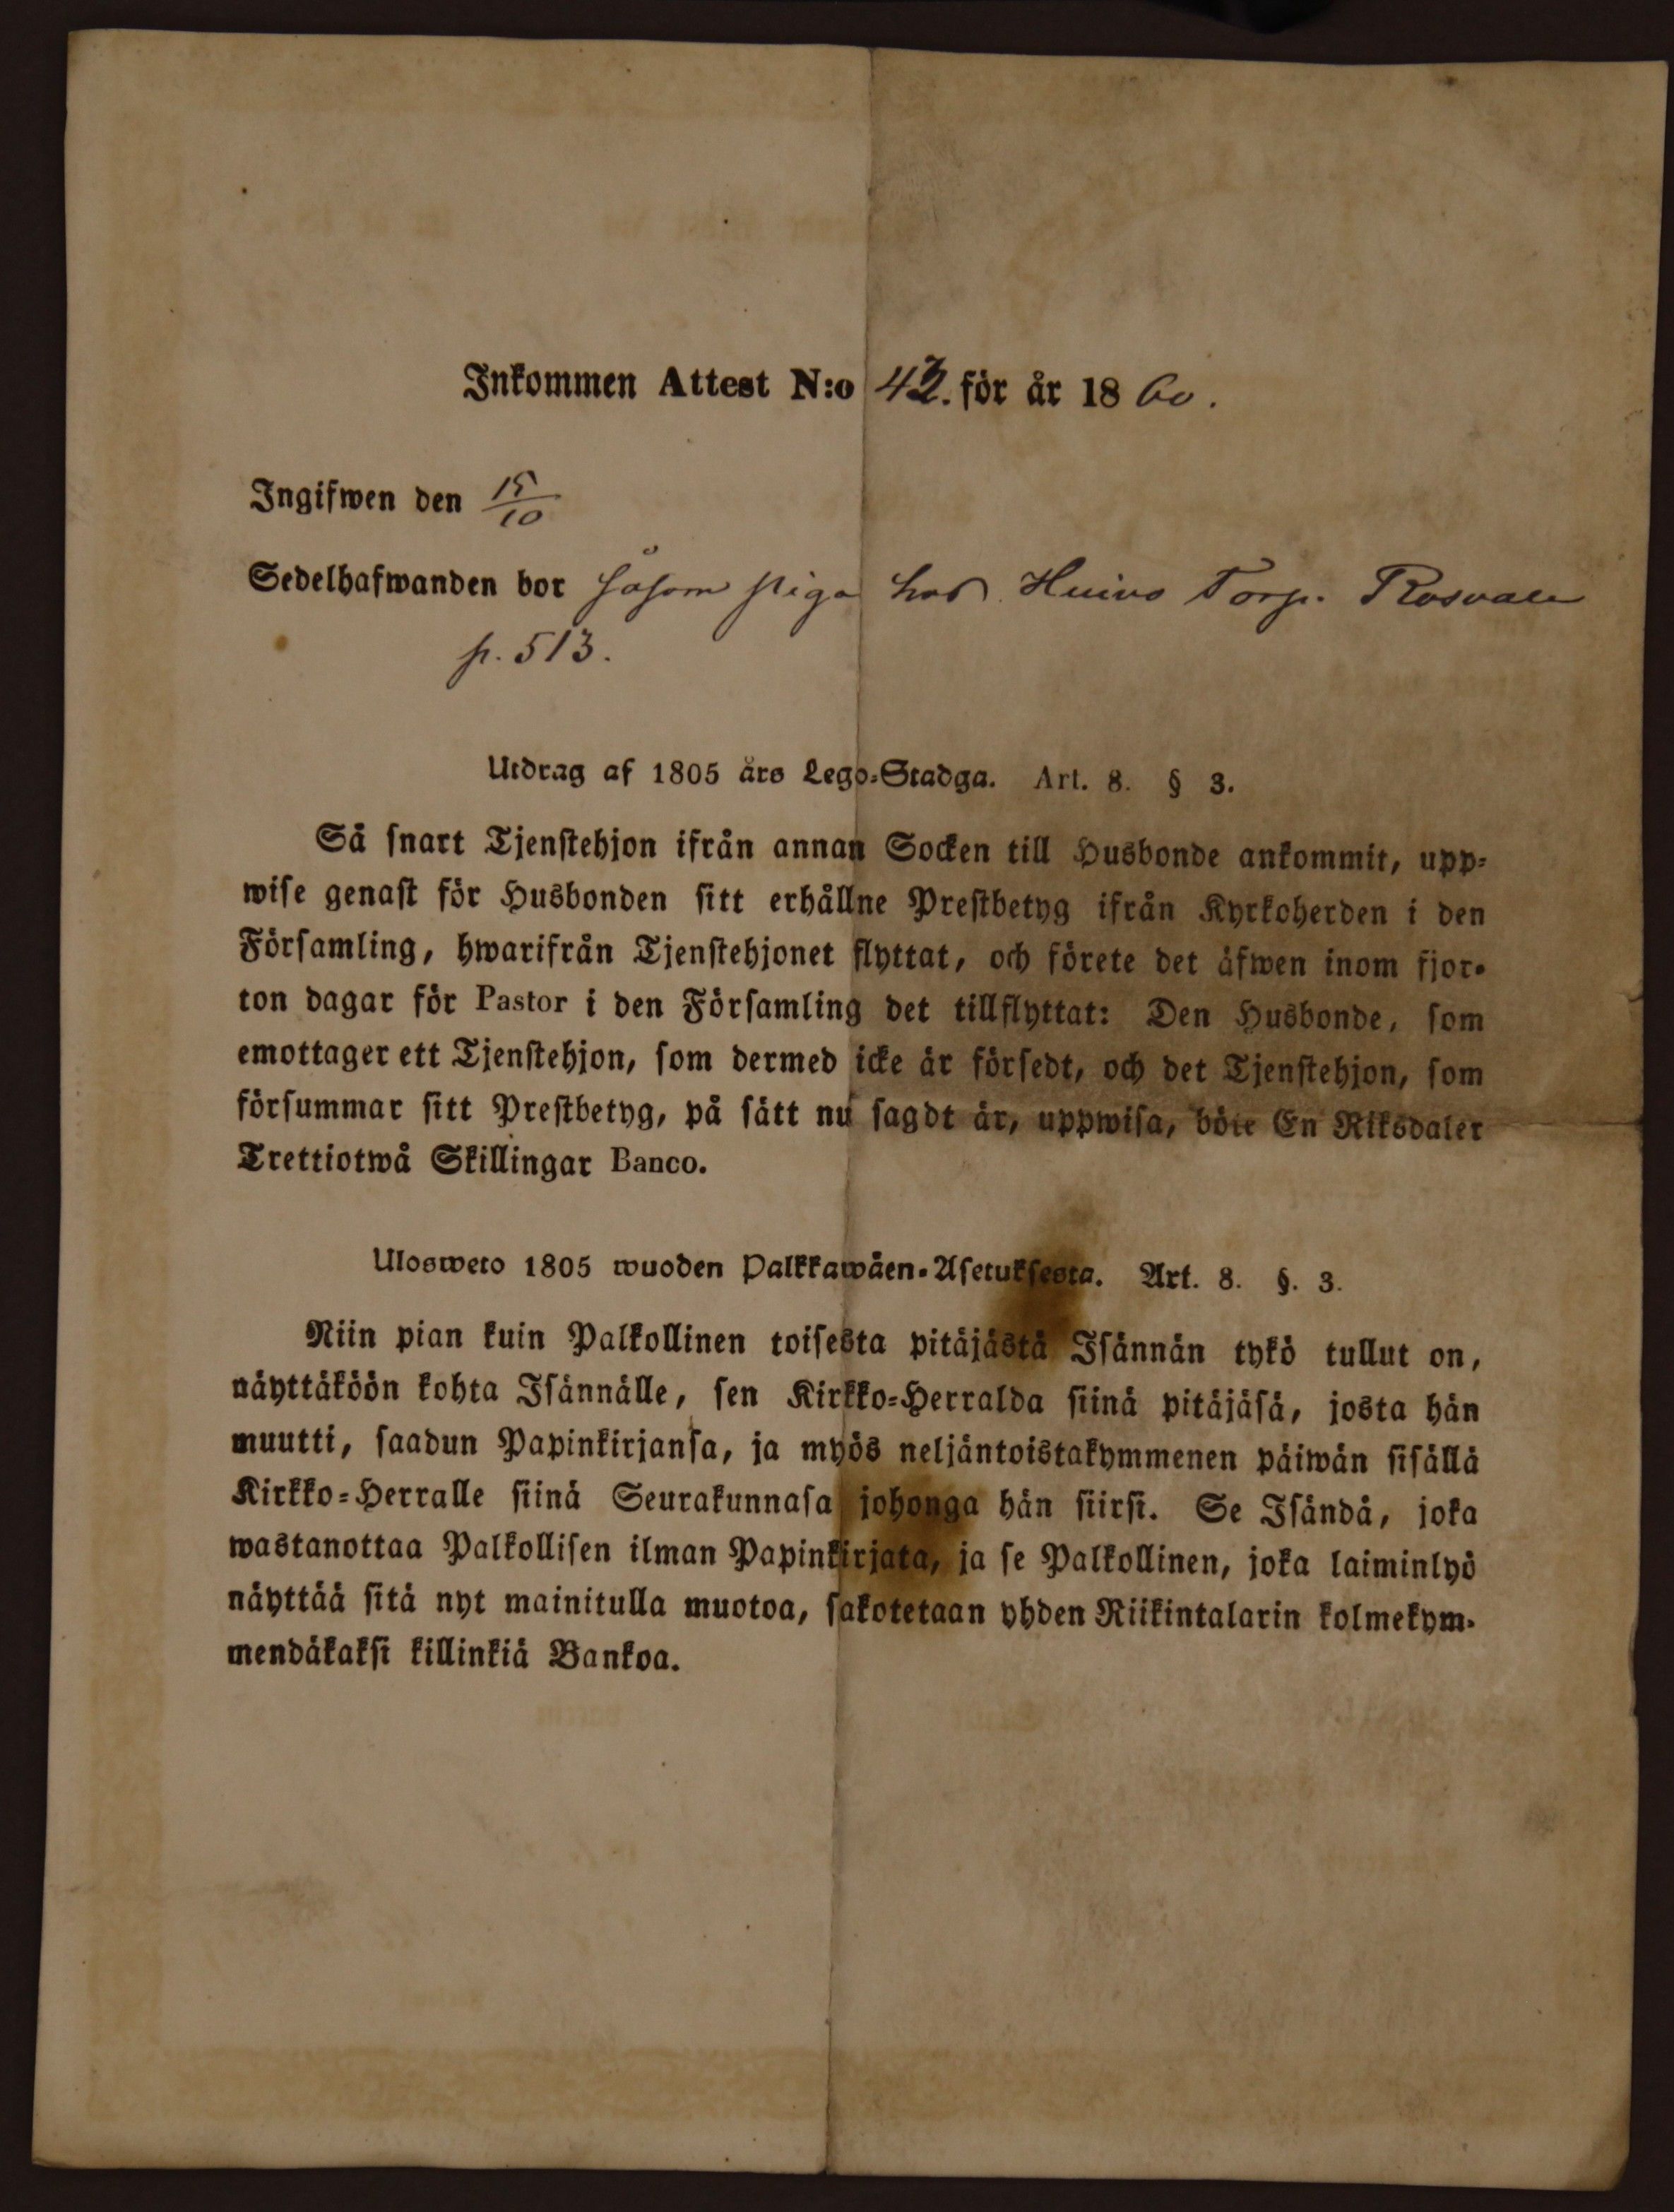 Inkommen Attest N:o 42. för år 1860.
Ingifwen den 15/10
Sedelhafwanden bor såsom piga hos Huivo Torp. Rosvall
p. 513.
Utdrag af 1805 års Lego-Stadga. Art. 8. § 3.
Så snart Tjenstehjon ifrån annan Socken till Husbonde ankommit, upp-
wise genast för Husbonden sitt erhållne Prestbetyg ifrån Kyrkoherden i den
Församling, hwarifrån Tjenstehjonet flyttat, och förete det äfwen inom fjor-
ton dagar för Pastor i den Församling det tillflyttat: Den Husbonde, som
emottager ett Tjenstehjon, som dermed icke är försedt, och det Tjenstehjon, som
försummar sitt Prestbetyg, på sätt nu sagdt är, uppwisa, böte En Riksdaler
Trettiotwå Skillingar Banco.
Ulosweto 1805 wuoden Palkkawäen-Asetuksesta. Art. 8. §. 3.
Niin pian kuin Palkollinen toisesta pitäjästä Isännän tykö tullut on,
näyttäköön kohta Isännälle, sen Kirkko-Herralda siinä pitäjäsä, josta hän
muutti, saadun Papinkirjansa, ja myös neljäntoistakymmenen päiwän sisällä
Kirkko-Herralle siinä Seurakunnasa johonga hän siirsi. Se Isändä, joka
wastanottaa Palkollisen ilman Papinkirjata, ja se Palkollinen, joka laiminlyö
näyttää sitä nyt mainitulla muotoa, sakotetaan yhden Riikintalarin kolmekym-
mendäkaksi killinkiä Bankoa.